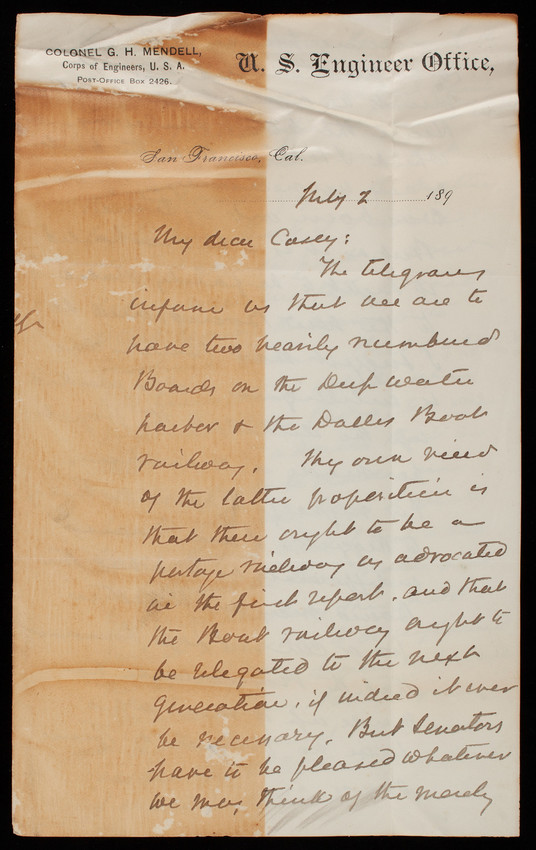 COLONEL G. H. MENDELL,
Corps of Engineers, U. S. A.
POST-OFFICE BOX 2426.
U. S. Engineer Office,
San Francisco, Cal.
July 2 189
My dear Casey:
The telegrams
inform us that we are to
have two heavily numbered
Boards on the Deep water
harbor & the Dalles Boat
railway. My own view
of the latter proposition is
that there ought to be a
portage railway as advocated
in the first report. and that
the Boat railway ought to
be relegated to the next
generation, if indeed it ever
be necessary. But Senators
have to be pleased whatever
we may think of the